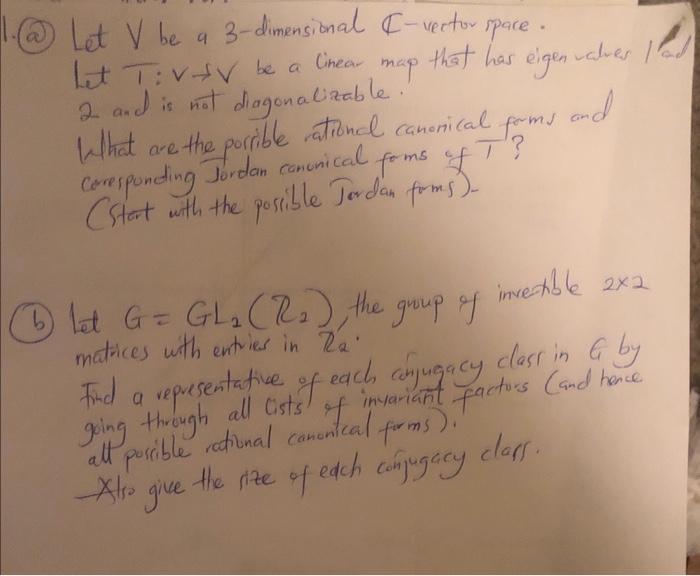 1. (a) Let V be a 3-dimensional ℂ-vector space.
Let T: V→V be a linear map that has eigenvalues 1 and
2 and is not diagonalizable.
What are the possible rational canonical forms and
corresponding Jordan canonical forms of T?
(Start with the possible Jordan forms).
(b) Let G = GL₂(ℤ₂), the group of invertible 2x2
matrices with entries in ℤ₂.
Find a representative of each conjugacy class in G by
going through all lists of invariant factors (and hence
all possible rational canonical forms).
Also give the size of each conjugacy class.